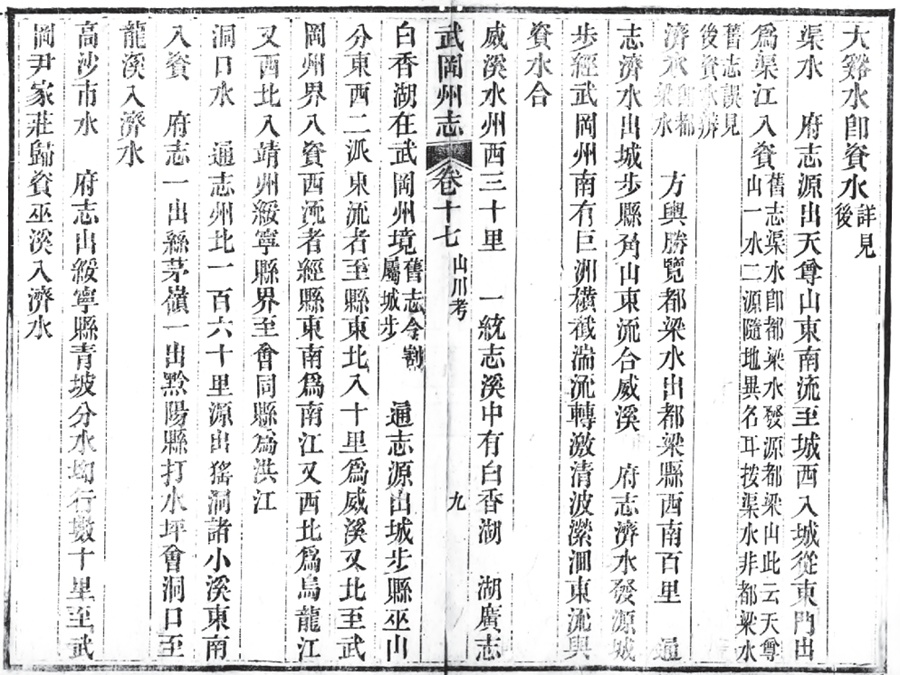 大谿水卽資水詳見後
渠水　府志源出天尊山東南流至城西入城從東門出
爲渠江入資舊志渠水卽都梁水發源都梁山此云天尊山一水二源隨地異名耳按渠水非都梁水
舊志誤見後資水辨
濟水卽都梁水　方輿勝覽都梁水出都梁縣西南百里　通
志濟水出城步縣角山東流合威溪　府志濟水發源城
步經武岡州南有巨洲橫截湍流轉激清波瀠洄東流與
資水合
威溪水州西三十里　一統志溪中有白香湖　湖廣志
武岡州志　卷十七　山川考　九
白香湖在武岡州境舊志今割屬城步　通志源出城步縣巫山
分東西二派東流者至縣東北入十里爲威溪又北至武
岡州界入資西流者經縣東南爲南江又西北爲烏龍江
又西北入靖州綏寧縣界至會同縣爲洪江
洞口水　通志州北一百六十里源出猺洞諸小溪東南
入資　府志一出縣茅嶺一出黔陽縣打水坪會洞口至
龍溪入濟水
高沙市水　府志出綏寧縣青坡分水坳行數十里至武
岡尹家莊歸資巫溪入濟水